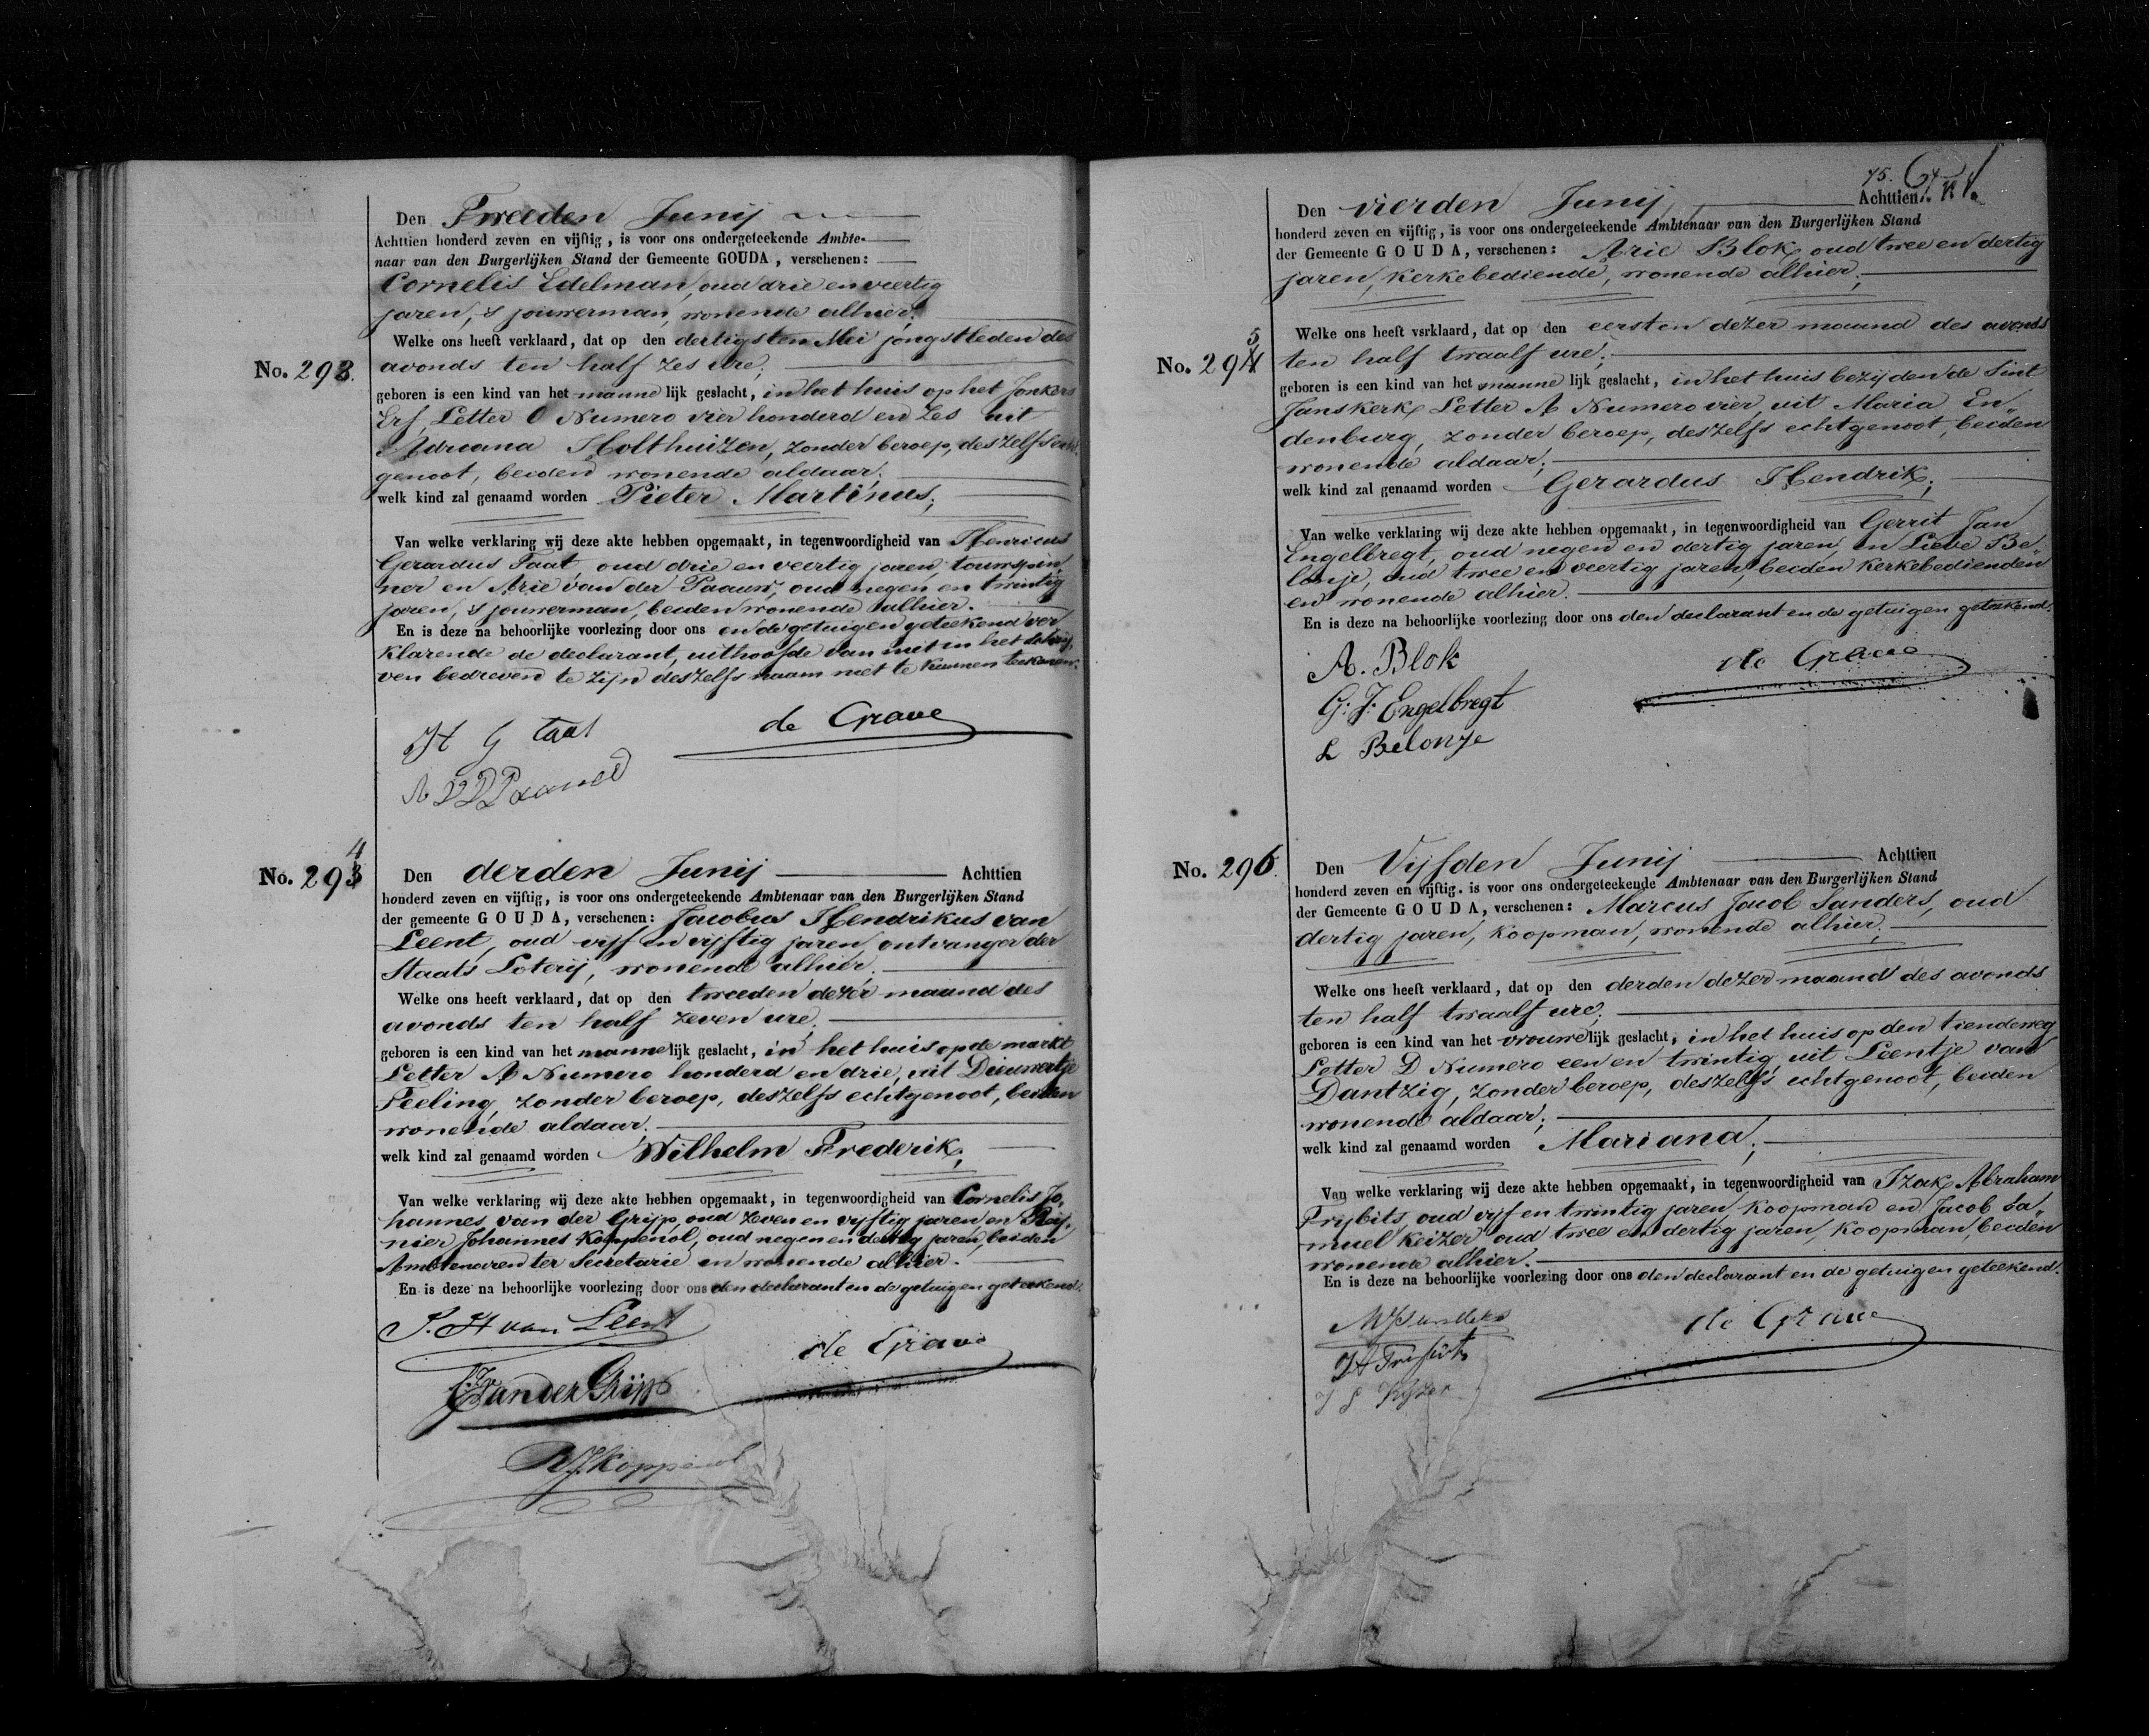 Den Tweeden Junij
Achttien honderd zeven en vijftig, is voor ons ondergeteekende Ambte-
naar van den Burgerlijken Stand der Gemeente GOUDA, verschenen:
Cornelis Edelman, oud drie en veertig
jaren, sjouwerman, wonende alhier;
Welke ons heeft verklaard, dat op den dertigsten Mei jongstleden des
No. 293.
avonds ten half zes ure;
geboren is een kind van het mannelijk geslacht, in het huis op het Jonkers
Erf, Letter O Numero vier honderd en zes uit
Adriana Holthuizen, zonder beroep, deszelfs echt
genoot, beiden wonende aldaar;
welk kind zal genaamd worden Pieter Martinus;
Van welke verklaring wij deze akte hebben opgemaakt, in tegenwoordigheid van Henricus
Gerardus Taat, oud drie en veertig jaren, touwspin
ner en Arie van der Paauw, oud negen en twintig
jaren, sjouwerman, beiden wonende alhier.
En is deze na behoorlijke voorlezing door ons en de getuigen geteekend ver
klarende de declarant, uithoofde van niet in het schrij
ven bedreven te zijn deszelfs naam niet te kunnen teekenen.
H G taat
de Grave
A VD Paauw
No. 294
Den derden Junij Achttien
honderd zeven en vijftig, is voor ons ondergeteekende Ambtenaar van den Burgerlijken Stand
der gemeente GOUDA, verschenen: Jacobus Hendrikus van
Leent, oud vijf en vijftig jaren, ontvanger der
Staats Loterij, wonende alhier.
Welke ons heeft verklaard, dat op den tweeden dezer maand des
avonds ten half zeven ure;
geboren is een kind van het mannelijk geslacht, in het huis op de markt
Letter A Numero honderd en drie, uit Dieuwertje
Feeling, zonder beroep, deszelfs echtgenoot, beiden
wonende aldaar.
welk kind zal genaamd worden Wilhelm Frederik;
Van welke verklaring wij deze akte hebben opgemaakt, in tegenwoordigheid van Cornelis Jo
hannes van der Grijp, oud zeven en vijftig jaren, en Rei
nier Johannes Koppenol, oud negen en dertig jaren, beiden
Ambtenaren ter Secretarie en wonende alhier.
En is deze na behoorlijke voorlezing door ons den declarant en de getuigen geteekend.
J. H van Leent
de Grave
van der Grijp
R J Koppenol
75.
Den vierden Junij Achttien
honderd zeven en vijftig, is voor ons ondergeteekende Ambtenaar van den Burgerlijken Stand
der Gemeente GOUDA, verschenen: Arie Blok, oud twee en dertig
jaren, kerkebediende, wonende alhier;
Welke ons heeft vsrklaard, dat op den eersten dezer maand des avonds
No. 295
ten half twaalf ure;
geboren is een kind van het mannelijk geslacht, in het huis bezijden de Sint
Janskerk, Letter A Numero vier, uit Maria En„
denburg, zonder beroep, deszelfs echtgenoot, beiden
wonende aldaar;
welk kind zal genaamd worden Gerardus Hendrik;
Van welke verklaring wij deze akte hebben opgemaakt, in tegenwoordigheid van Gerrit Jan
Engelbregt, oud negen en dertig jaren, en Lieve Be„
lonje, oud twee en veertig jaren, beiden kerkebedienden
en wonende alhier.
En is deze na behoorlijke voorlezing door ons den declarant en de getuigen geteekend.
A. Blok
de Grave
G: J: Engelbregt
L Belonje
No. 296.
Den Vijfden Junij Achttien
honderd zeven en vijftig. is voor ons ondergeteekende Ambtenaar van den Burgerlijken Stand
der Gemeente GOUDA, verschenen: Marcus Jacob Sanders, oud
dertig jaren, koopman, wonende alhier;
Welke ons heeft verklaard, dat op den derden dezer maand des avonds
ten half twaalf ure;
geboren is een kind van het vrouwelijk geslacht, in het huis op den tiendeweg
Letter D Numero een en twintig, uit Leentje van
Dantzig, zonder beroep, deszelfs echtgenoot, beiden
wonende aldaar;
welk kind zal genaamd worden Mariana;
Van welke verklaring wij deze akte hebben opgemaakt, in tegenwoordigheid van Izak Abraham
Trijbits, oud vijf en twintig jaren, koopman en Jacob Sa„
muel Keizer oud twee en dertig jaren, koopman, beiden
wonende alhier.
En is deze na behoorlijke voorlezing door ons den declarant en de getuigen geteekend.
MJSanders
de Grave
J A Trijbits
J S Kijzer